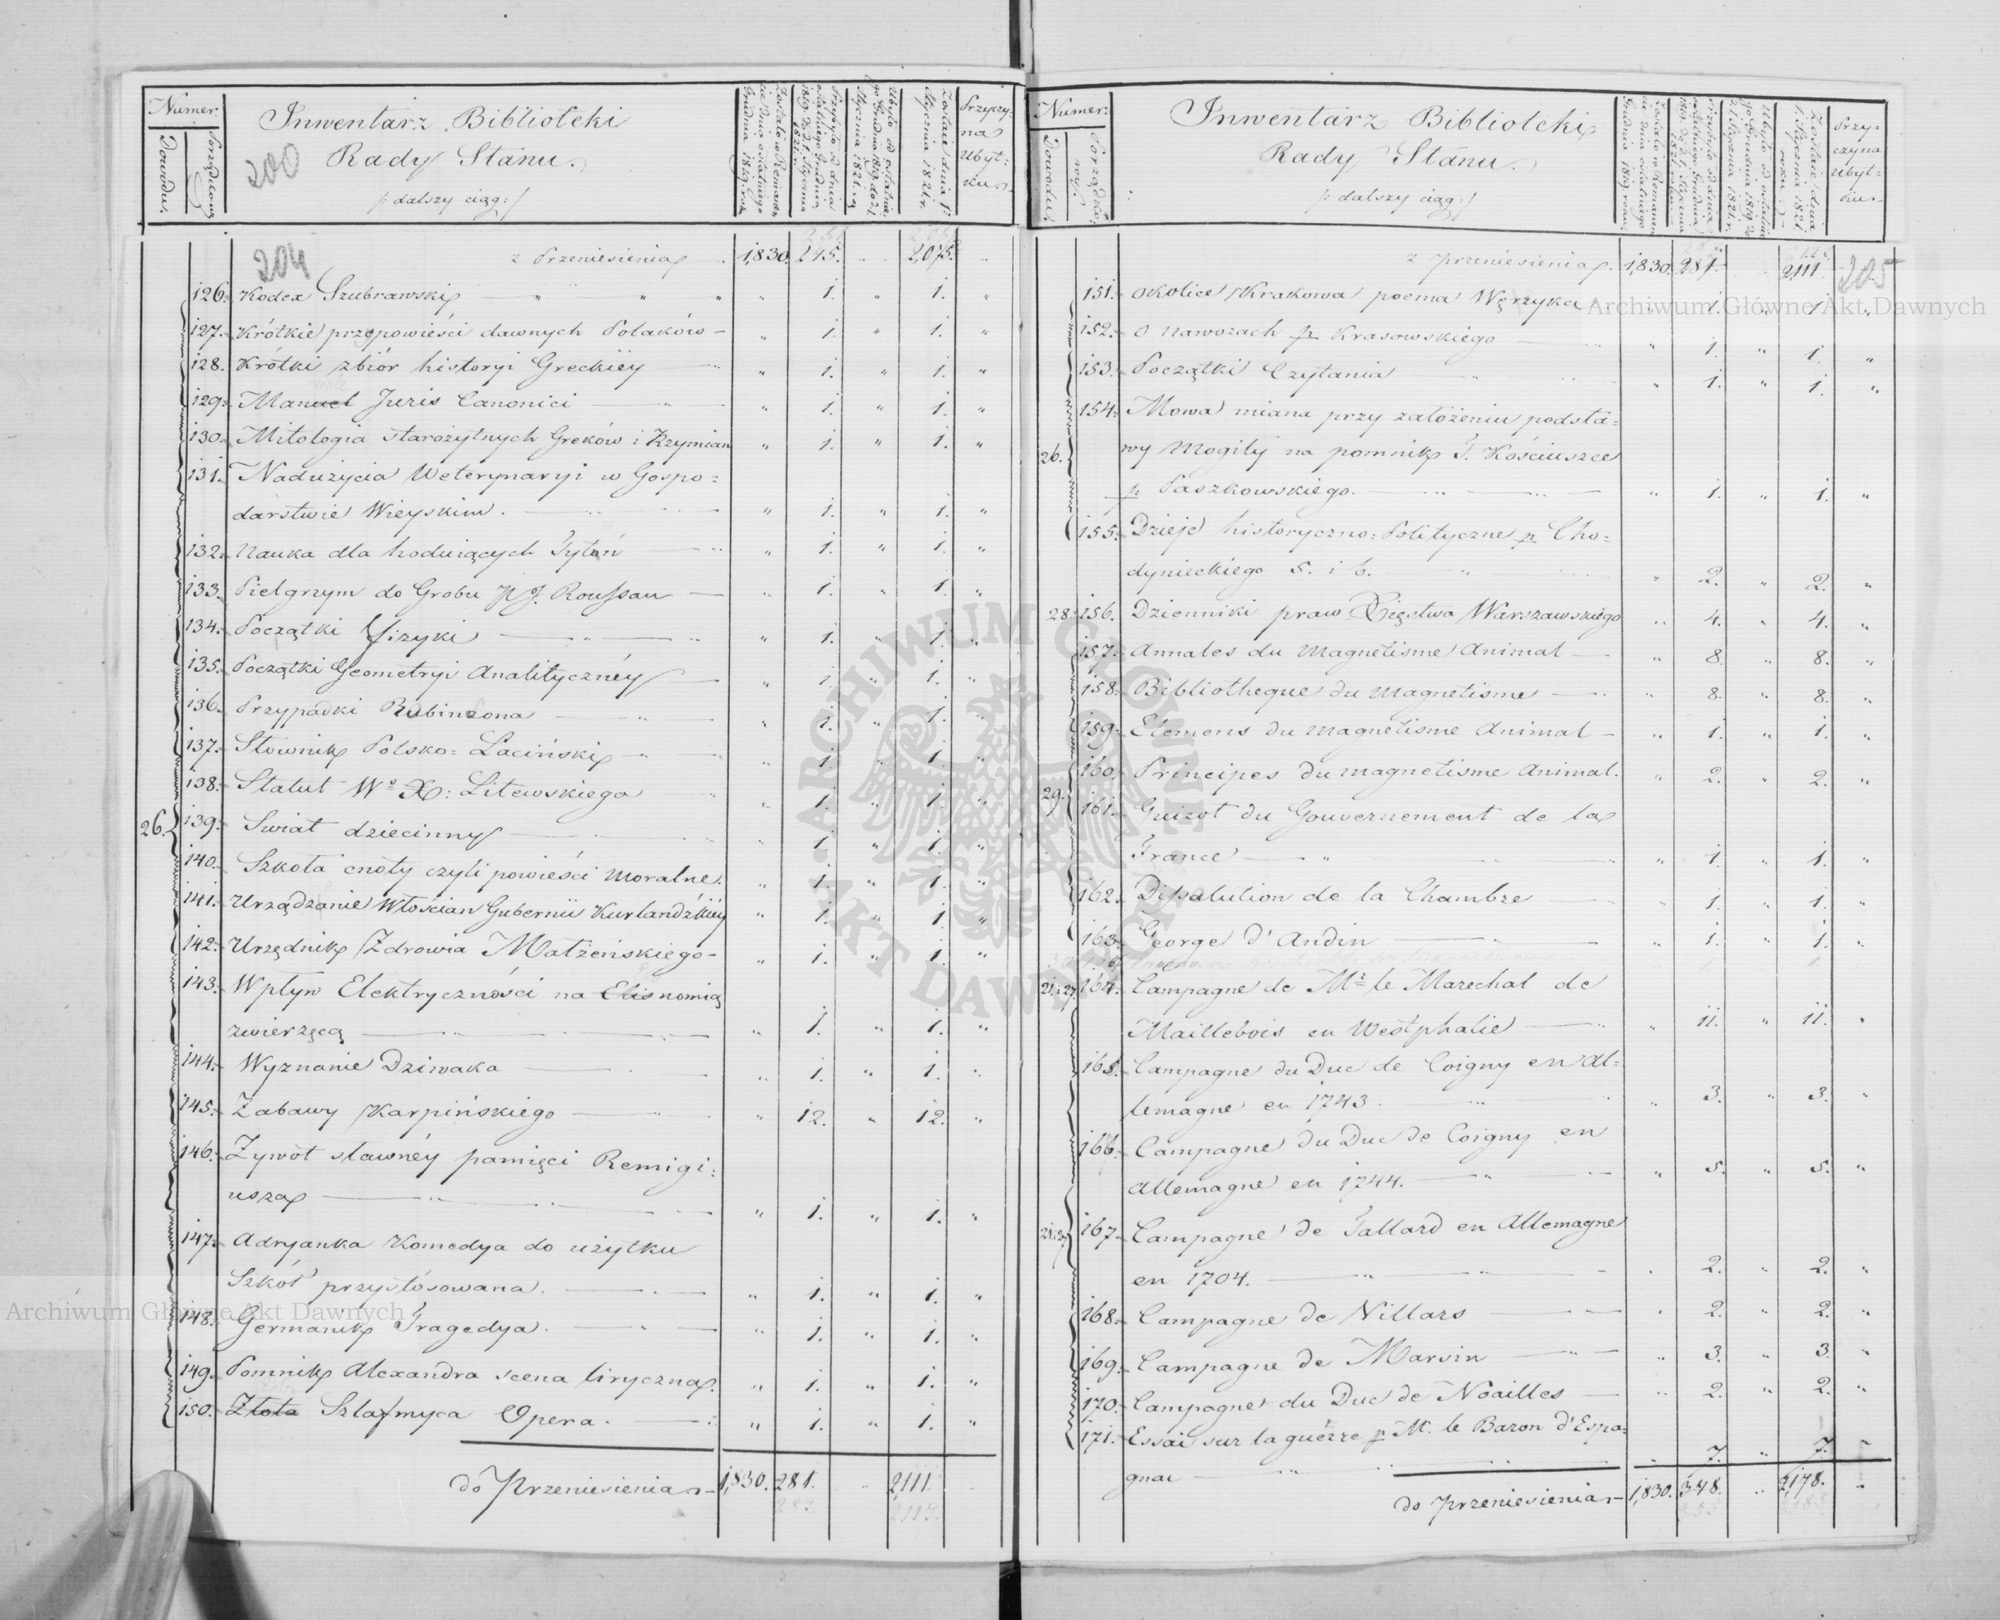 Numer.
Dowodu.
Porządkowy
Inwentarz Biblioteki
Rady Stanu.
/: dalszy ciąg :/
200
204
Przyczy-
na
Ubyt-
ku.
z Przeniesienia 1,830. 275. 2,075.
126. Kodex Szubrawski „ 1. „ 1. „
127. Krótkie przypowieści dawnych Polaków – „ 1. „ 1. „
128. Krótki zbiór historyi Greckiéy „ 1. „ 1. „
129. Manuel Juris Canonici „ 1. „ 1. „
130. Mitologia starożytnych Greków i Rzymian „ 1. „ 1. „
131. Nadużycia Weterynaryi w Gospo=
darstwie Wieyskim. „ 1. „ 1. „
132. Nauka dla hoduiących Tytoń „ 1. „ 1. „
133. Pielgrzym do Grobu J. J. Roussau „ 1. „ 1. „
134. Początki fizyki „ 1. „ 1. „
135. Początki Geometryi Analitycznéy „ 1. „ 1. „
136. Przypadki Robinsona „ 1. „ 1. „
137. Słownik Polsko=Laciński „ 1. „ 1. „
138. Statut Wo X: Litewskiego „ 1. „ 1. „
26. 139. Swiat dziecinny „ 1. „ 1. „
140. Szkoła cnoty czyli powieści moralne. „ 1. „ 1. „
141. Urządzanie Włościan Gubernii Kurlandzkiéy „ 1. „ 1. „
142. Urzędnik Zdrowia Małżeńskiego – „ 1. „ 1. „
143. Wpływ Elektryczności na Elisnomią
zwierzęcą „ 1. „ 1. „
144. Wyznanie Dziwaka „ 1. „ 1. „
145. Zabawy Karpińskiego „ 12. „ 12. „
146. Zywot sławnéy pamięci Remigi=
usza „ 1. „ 1. „
147. Adryanka Komedya do użytku
Szkół przystósowana. „ 1. „ 1. „
148. Germanik Tragedya. „ 1. „ 1. „
149. Pomnik Alexandra scena liryczna. „ 1. „ 1. „
150. Złota Szlafmyca Opera. „ 1. „ 1. „
do Przeniesienia – 1,830. 281. 2111.
Numer.
Dowodu.
Porządko=
wy.
Inwentarz Biblioteki
Rady Stanu.
/: dalszy ciąg :/
Przy=
czyna
Ubyt=
ku.
205
z przeniesienia. 1,830. 281. 2111.
151. Okolice Krakowa poema Wężyka 1. 1.
152. O nawozach p Krasowskiego „ 1. „ 1. „
153. Początki Czytania „ 1. „ 1. „
154. Mowa miana przy założeniu podsta=
26. wy Mogiły na pomnik T. Kościuszce
p Paszkowskiego. „ 1. „ 1. „
155. Dzieje historyczno=Polityczne p Cho=
dynieckiego S. i t. „ 2. „ 2. „
28. 156. Dzienniki praw Xięstwa Warszawskiego „ 4. „ 4. „
157. Annales du Magnetisme Animal „ 8. „ 8. „
158. Bibliotheque du Magnetisme „ 8. „ 8. „
159. Elemens du magnetisme Animal – „ 1. „ 1. „
160. Principes du magnetisme Animal. „ 2. „ 2. „
29. 161. Guizot du Gouvernement de la
France „ 1. „ 1. „
162. Dissolution de la Chambre „ 1. „ 1. „
163. George d'Andin „ 1. „ 1. „
21.i27. 164. Campagne de Mr le Marechal de
Maillebois en Westphalie „ 11. „ 11. „
165. Campagne du Duc de Coigny en Al=
lemagne en 1743. „ 3. „ 3. „
166. Campagne du Duc de Coigny en
Allemagne en 1744. „ 5. „ 5. „
167. Campagne de Tallard en Allemagne
en 1704. „ 2. „ 2. „
168. Campagne de Villars „ 2. „ 2. „
169. Campagne de Marsin „ 3. „ 3. „
170. Campagne du Duc de Noailles „ 2. „ 2. „
171. Essai sur la guerre p M. le Baron d'Espa=
gnac „ 7. „ 7. „
do Przeniesienia – 1,830. 348. 2,178.
Archiwum Główne Akt Dawnych
Archiwum Główne Akt Dawnych
ARCHIWUM GŁÓWNE AKT DAWNYCH